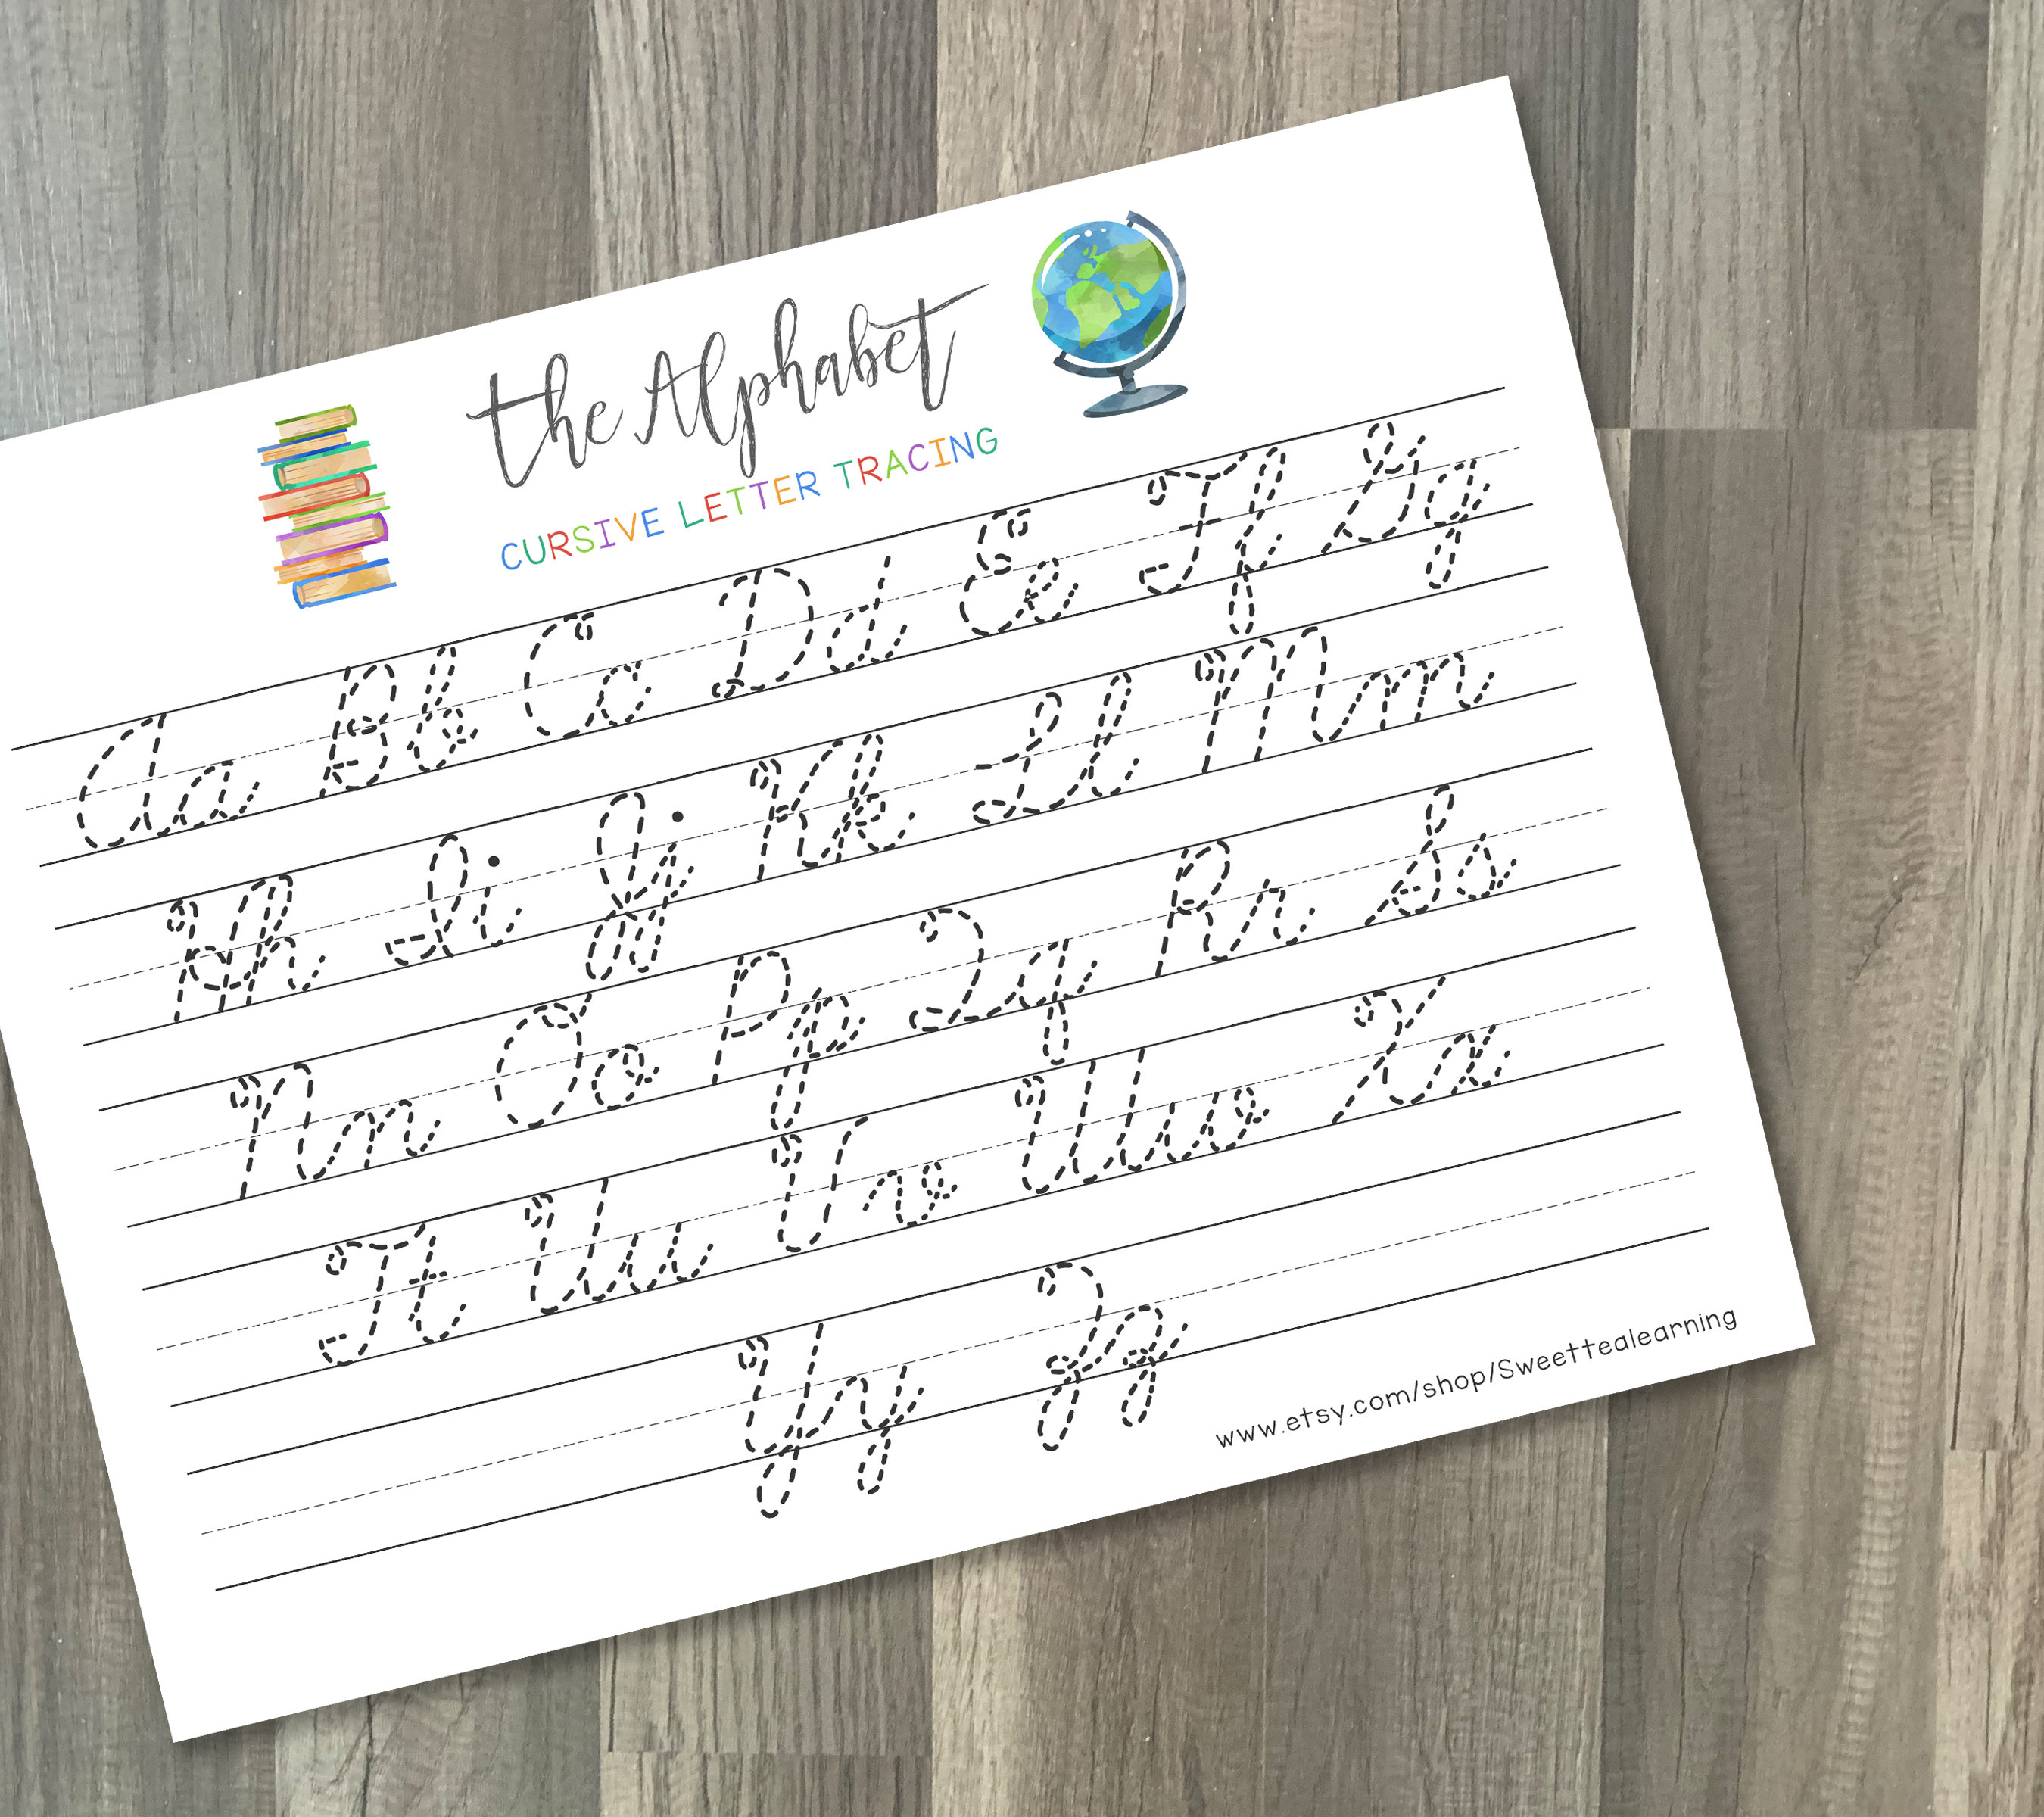 the Alphabet
CURSIVE LETTER TRACING
Aa Bb Cc Dd Ee Ff Gg
Hh Ii Jj Kk Ll Mm
Nn Oo Pp Qq Rr Ss
Tt Uu Vv Ww Xx
Yy Zz
www.etsy.com/shop/Sweettealearning